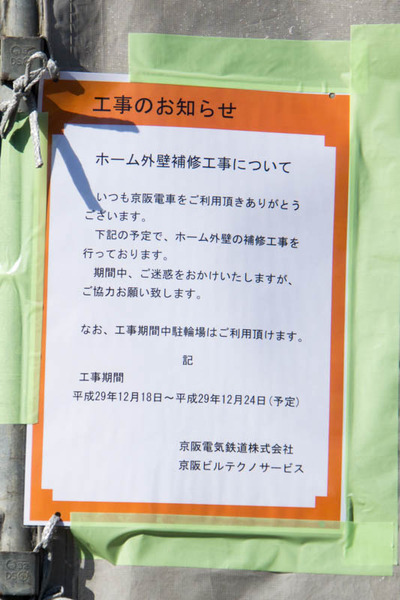 工事のお知らせ
ホーム外壁補修工事について
いつも京阪電車をご利用頂きありがとう
ございます。
下記の予定で、ホーム外壁の補修工事を
行っております。
期間中、ご迷惑をおかけいたしますが、
ご協力お願い致します。
なお、工事期間中駐輪場はご利用頂けます。
記
工事期間
平成29年12月18日～平成29年12月24日(予定)
京阪電気鉄道株式会社
京阪ビルテクノサービス